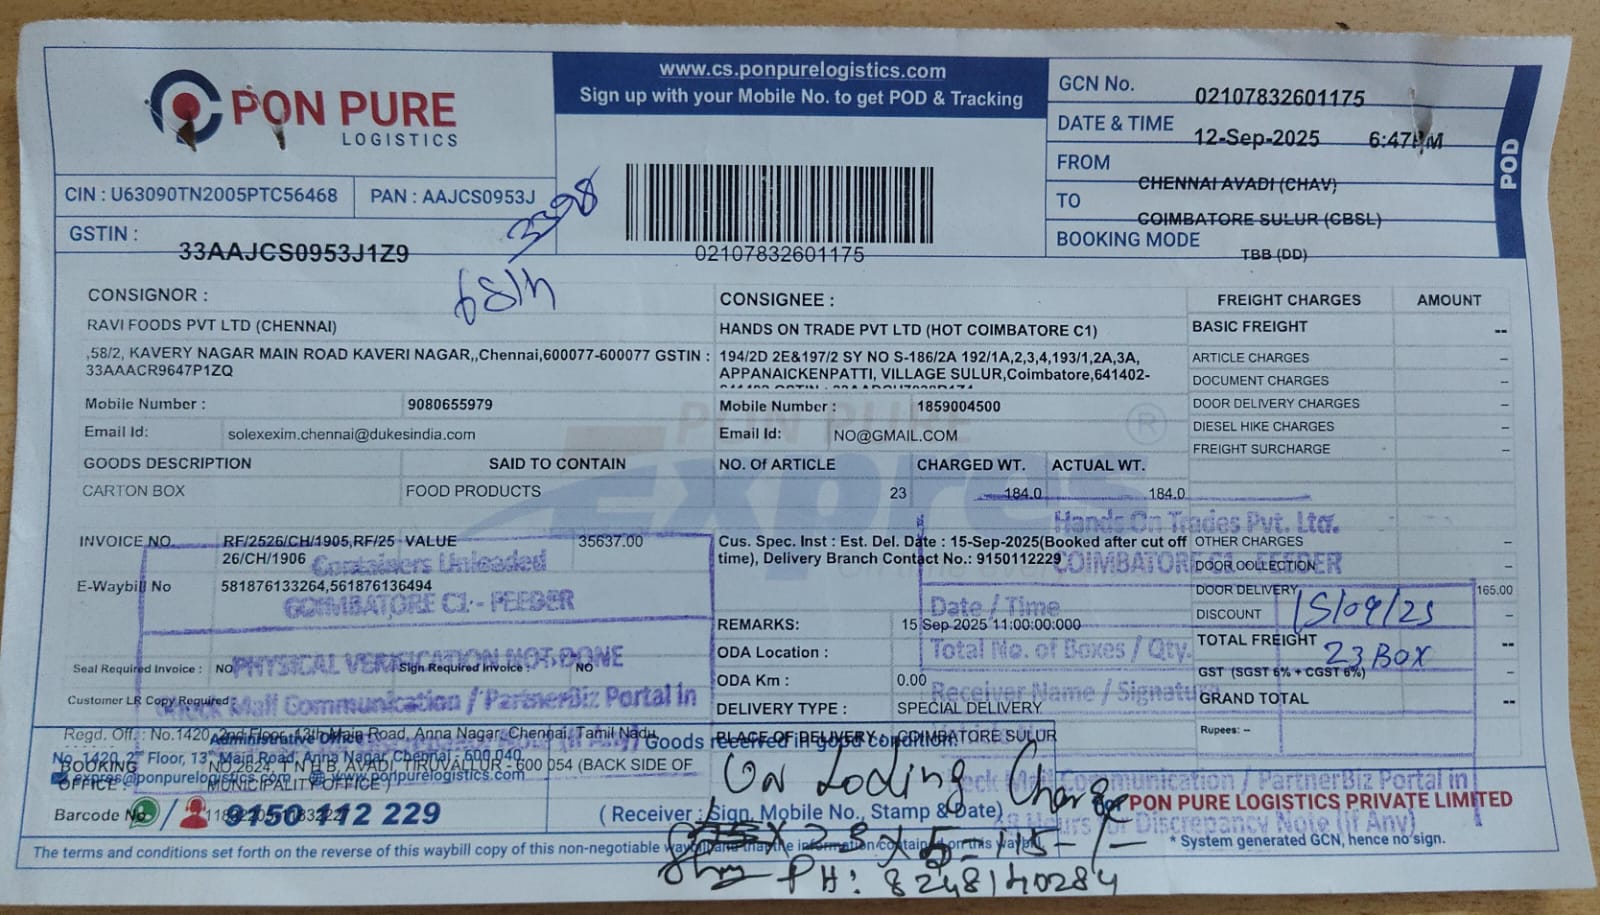 PON PURE
LOGISTICS
www.cs.ponpurelogistics.com
Sign up with your Mobile No. to get POD & Tracking
GCN No. 02107832601175
DATE & TIME 12-Sep-2025 6:47PM
FROM CHENNAI AVADI (CHAV)
TO COIMBATORE SULUR (CBSL)
BOOKING MODE TBB (DD)
POD
CIN : U63090TN2005PTC56468 PAN : AAJCS0953J
GSTIN : 33AAJCS0953J1Z9
3398
02107832601175
CONSIGNOR :
RAVI FOODS PVT LTD (CHENNAI)
,58/2, KAVERY NAGAR MAIN ROAD KAVERI NAGAR,,Chennai,600077-600077 GSTIN :
33AAACR9647P1ZQ
Mobile Number : 9080655979
Email Id: solexexim.chennai@dukesindia.com
CONSIGNEE :
HANDS ON TRADE PVT LTD (HOT COIMBATORE C1)
194/2D 2E&197/2 SY NO S-186/2A 192/1A,2,3,4,193/1,2A,3A,
APPANAICKENPATTI, VILLAGE SULUR,Coimbatore,641402-
Mobile Number : 1859004500
Email Id: NO@GMAIL.COM
FREIGHT CHARGES AMOUNT
BASIC FREIGHT --
ARTICLE CHARGES –
DOCUMENT CHARGES –
DOOR DELIVERY CHARGES –
DIESEL HIKE CHARGES –
FREIGHT SURCHARGE –
GOODS DESCRIPTION SAID TO CONTAIN
CARTON BOX FOOD PRODUCTS
NO. Of ARTICLE CHARGED WT. ACTUAL WT.
23 184.0 184.0
PON PURE
Expres
®
INVOICE NO. RF/2526/CH/1905,RF/25 VALUE 35637.00
26/CH/1906
E-Waybill No 581876133264,561876136494
Seal Required Invoice : NO Sign Required Invoice : NO
Customer LR Copy Required :
Containers Unloaded
COIMBATORE C1 - FEEDER
PHYSICAL VERIFICATION NOT DONE
Check Mail Communication / PartnerBiz Portal in
Cus. Spec. Inst : Est. Del. Date : 15-Sep-2025(Booked after cut off
time), Delivery Branch Contact No.: 9150112229
REMARKS: 15 Sep 2025 11:00:00:000
ODA Location :
ODA Km : 0.00
DELIVERY TYPE : SPECIAL DELIVERY
PLACE OF DELIVERY : COIMBATORE SULUR
Hands On Trades Pvt. Ltd.
COIMBATORE C1 - FEEDER
Date / Time 15/09/25
Total No. of Boxes / Qty. 23 BOX
Receiver Name / Signature
Check Mail Communication / PartnerBiz Portal in
48 Hours for Discrepancy Note (if Any)
OTHER CHARGES –
DOOR COLLECTION –
DOOR DELIVERY 165.00
DISCOUNT –
TOTAL FREIGHT --
GST (SGST 6% + CGST 6%) –
GRAND TOTAL --
Rupees: --
Regd. Off. : No.1420, 2nd Floor, 13th Main Road, Anna Nagar, Chennai, Tamil Nadu,
Administrative Office
No. 1420, 2nd Floor, 13th Main Road, Anna Nagar, Chennai - 600 040
BOOKING OFFICE : NO.2624, T N H B, AVADI, TIRUVALLUR - 600 054 (BACK SIDE OF
MUNICIPALITY OFFICE )
expres@ponpurelogistics.com www.ponpurelogistics.com
Barcode No
9150 112 229
Goods received in good condition.
( Receiver : Sign, Mobile No., Stamp & Date)
On Loding Charge
X 23 X 5 - 115-/-
PH: 8248140284
for PON PURE LOGISTICS PRIVATE LIMITED
* System generated GCN, hence no sign.
The terms and conditions set forth on the reverse of this waybill copy of this non-negotiable waybill and that the information contained on this waybill